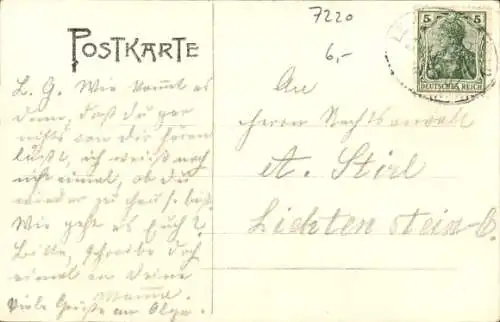 7220
6,-
POSTKARTE
5 5
DEUTSCHES REICH
L. G. Wie kommt es
denn, daß du gar
nichts von dir hören
läßt, ich weiß noch
nicht einmal, ob du
wieder zu Hause bist.
Wie geht es Euch?
Bitte, schreibe doch
einmal an Deine
Mama.
Viele Grüße an Olga.
An
Herrn Rechtsanwalt
A. Stirl
Lichtenstein-C.